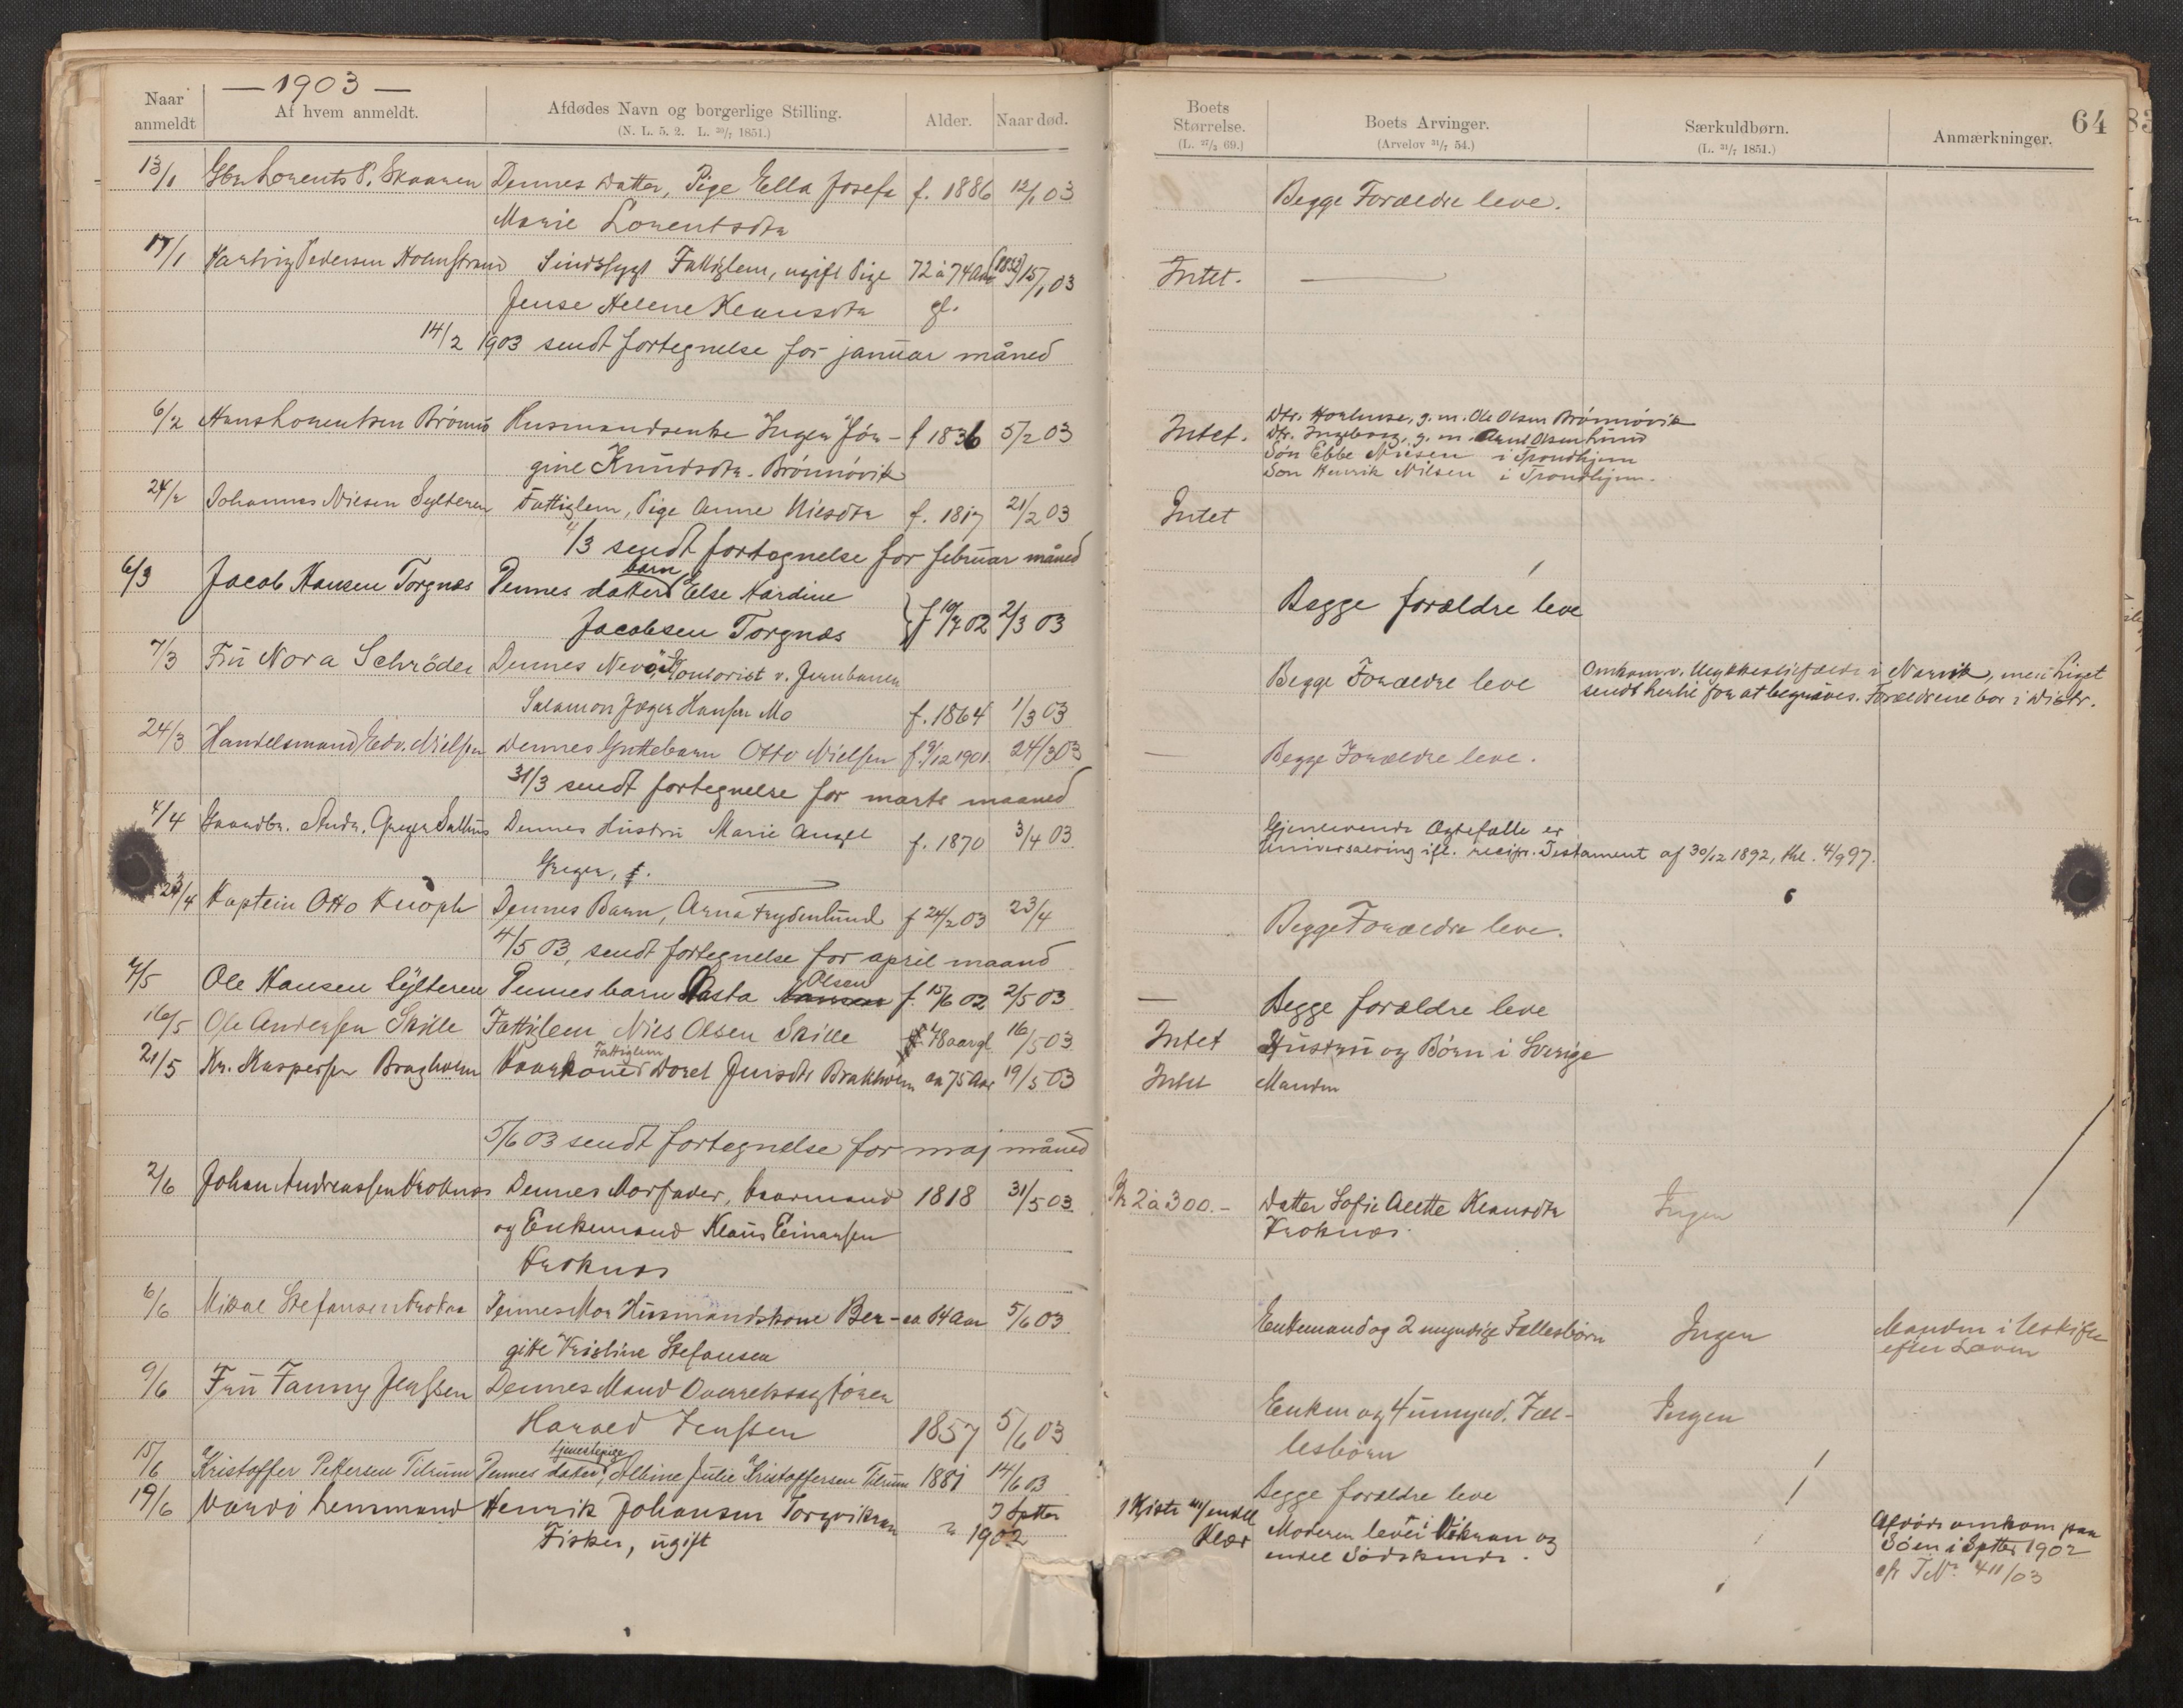 — 1903 —
Naar anmeldt
Af hvem anmeldt.
Afdødes Navn og borgerlige Stilling.
(N. L. 5, 2. L. 30/7 1851.)
Alder.
Naar død.
13/1 Gbr. Lorents P. Skaaren Dennes Datter, Pige Ella Josefa f. 1886 12/1 03
Marie Lorentsdtr
17/1 Hartvig Pedersen Holmstrand Sindssygt Fattiglem, ugift Pige 72 à 74 Aar (1832) 15/1 03
Jense Helene Klausdtr gl.
14/2 1903 sendt fortegnelse for januar måned
6/2 Hans Lorentsen Brønnø Husmandsenke Inger Jør- f 1836 5/2 03
gine Knudsdtr. Brønnøvik
24/2 Johannes Nilsen Sylteren Fattiglem, Pige Anne Nilsdtr f. 1817 21/2 03
4/3 sendt fortegnelse for februar måned
barn
6/3 Jacob Hansen Torgnæs Dennes datter Else Hardine
Jacobsen Torgnæs f 19/7 02 2/3 03
7/3 Fru Nora Schröder Dennes Nevö, Kontorist v. Jernbanen
Salamon Jæger Hansen Mo f. 1864 1/3 03
24/3 Handelsmand Edv. Nielsen Dennes Guttebarn Otto Nielsen f. 9/12 1901 24/3 03
31/3 sendt fortegnelse for marts maaned
4/4 Gaardbr. Andr. Greger Salhus Dennes Hustru Marie Angel f. 1870 3/4 03.
Greger, f.
23/4 Kaptein Otto Knoph Dennes Barn, Arna Frydenlund f 24/2 03 23/4
4/5 03, sendt fortegnelse for april maaned
Olsen
4/5 Ole Hansen Sylteren Dennes barn Aasta Hansen f. 15/6 02 2/5 03
16/5 Ole Andersen Skille Fattiglem Niels Olsen Skille 48 aar gl 16/5 03
Fattiglem
21/5 Kr. Kaspersen Bragholm Kaarkone Doret Jensdtr Brakholm ca 75 Aar 19/5 03
5/6 03 sendt fortegnelse for maj måned
2/6 Johan Andreassen Kroknæs Dennes Morfader, Kaarmand 1818 31/5 03
og Enkemand Klaus Einarsen
Kroknæs
6/6 Mikal Stefansen Dennes Mor Husmandskone Ber- ca 64 Aar 5/6 03
gitte Kristine Stefansen
9/6 Fru Fanny Jenssen Dennes Mand Overretssagfører
Harald Jenssen 1857 5/6 03
tjenestepige
15/6 Kristoffer Pettersen Tilrum Dennes datter, Albine Julie Kristoffersen Tilrum 1881 14/6 03
19/6 Vardø Lensmand Henrik Johansen Torgvikran
Fisker, ugift Septbr 1902
Boets Størrelse.
(L. 27/3 69.)
Boets Arvinger.
(Arvelov 31/7 54.)
Særkuldbørn.
(L. 31/7 1851.)
Anmærkninger.
64
83
Begge Forældre leve.
Intet. —
Intet. Dtr. Hanne, g. m. Ole Olsen Brønnøvik
Dtr. Ingeborg, g. m. Arnt Olsen Lund
Søn Ebbe Nilsen i Trondhjem
Søn Henrik Nilsen i Trondhjem.
Intet
Begge forældre leve
Begge Forældre leve Omkom v. Ulykkestilfælde i Narvik, men Liget
sendt hertil for at begraves. Forældrene bor i Distr.
— Begge Forældre leve.
Gjenlevende Ægtefælle er
Universalarving ifl. recipr. Testament af 30/12 1892, thl. 4/9 97.
Begge Forældre leve.
— Begge forældre leve
Intet Hustru og Børn i Sverige
Intet Manden
Kr 2 à 300.- Datter Sofie Alette Klausdtr Ingen
Kroknæs.
Enkemand og 2 myndige Fællesbørn Ingen Manden i Uskifte
efter Loven
Enken og 4 umynd. Fæl- Ingen
lesbørn
Begge forældre leve
1 Kiste m/ endel Klær Moderen lever i Vikran og
endel Sødskende.
Afdøde omkom paa
Søen i Septbr 1902
cfr J.N: 411/03